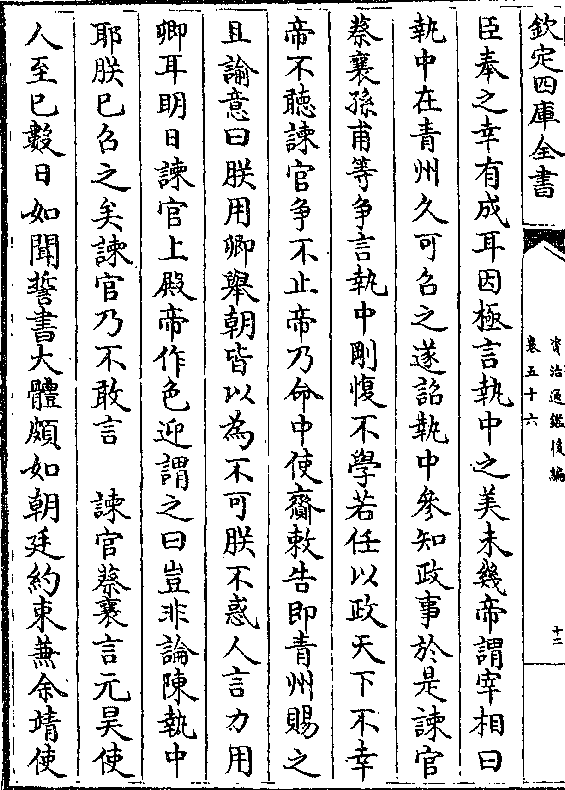 欽定四庫全書
資治通鑑後編
卷五十六
十二
臣奉之幸有成耳因極言執中之美未幾帝謂宰相曰
執中在青州久可召之遂詔執中參知政事於是諫官
蔡襄孫甫等爭言執中剛愎不學若任以政天下不幸
帝不聽諫官爭不止帝乃命中使齎敕告即青州賜之
且諭意曰朕用卿舉朝皆以為不可朕不惑人言力用
卿耳明日諫官上殿帝作色迎謂之曰豈非論陳執中
耶朕已召之矣諫官乃不敢言　諫官蔡襄言元昊使
人至已數日如聞誓書大體頗如朝廷約束兼余靖使